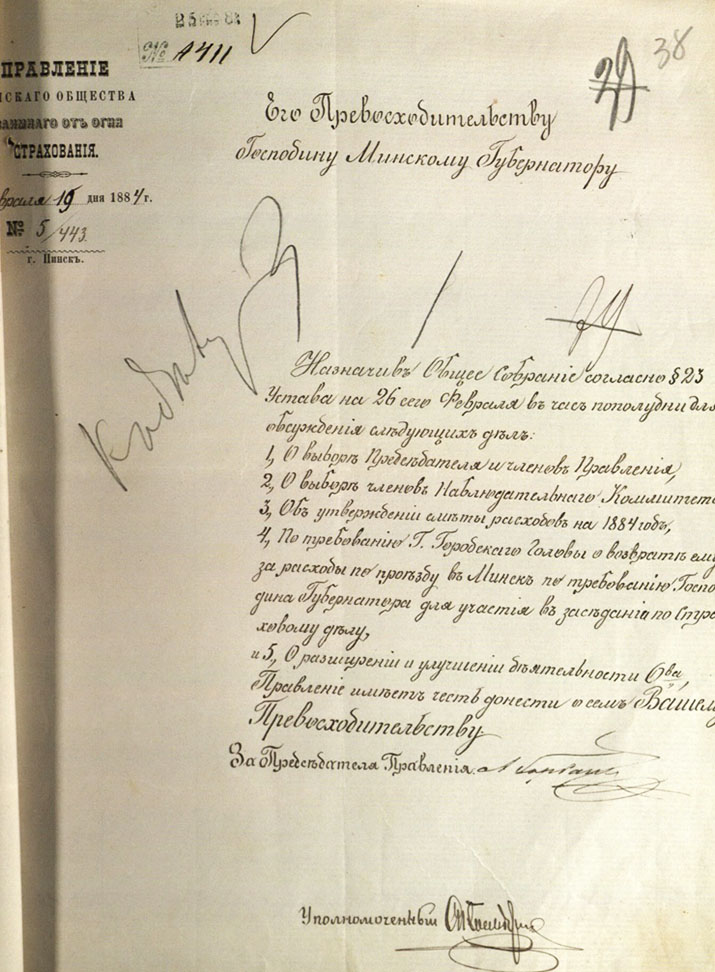 № 1411
38
ПРАВЛЕНІЕ
СКАГО ОБЩЕСТВА
ЗАИМНАГО ОТЪ ОГНЯ
СТРАХОВАНІЯ.
враля 19 дня 1884 г.
№ 5/443.
г. Пинскъ.
Его Превосходительству
Господину Минскому Губернатору
Назначивъ Общее Собраніе согласно § 23
Устава на 26 сего Февраля въ часъ пополудни для
обсужденія слѣдующихъ дѣлъ:
1, О выборѣ Предсѣдателя и членовъ Правленія,
2, О выборѣ членовъ Наблюдательнаго Коммитет
3, Объ утвержденіи смѣты расходовъ на 1884 годъ,
4, По требованію Г. Городскаго Головы о возвратѣ ему
за расходы по проѣзду въ Минскъ по требованію Госпо-
дина Губернатора для участія въ засѣданіи по Стра-
ховому дѣлу,
и 5, О разширеніи и улучшеніи дѣятельности О-ва,
Правленіе имѣетъ честь донести о семъ Вашему
Превосходительству
За Предсѣдателя Правленія
Уполномоченный